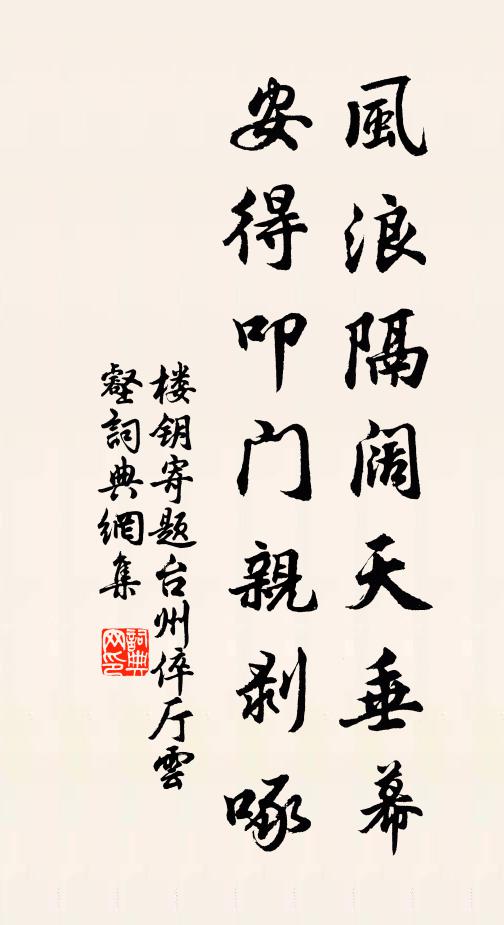 風浪隔阔天垂幕
安得叩门親剥啄
楼钥寄题台州倅厅雲
壑詞典網集
詞典
网印